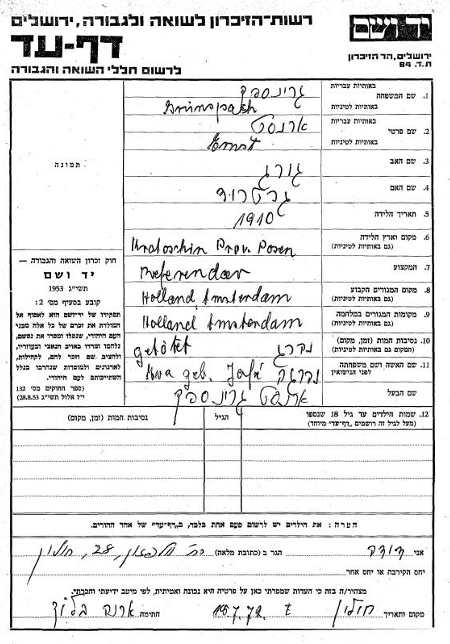 רשות-הזיכרון לשואה ולגבורה, ירושלים
יד ושם
דף-עד
לרשום חללי השואה והגבורה
ירושלים, הר הזיכרון
ת.ד. 84
1. שם המשפחה
באותיות עבריות
גרינספך
באותיות לטיניות
Grünspach
2. שם פרטי
באותיות עבריות
ארנסט
באותיות לטיניות
Ernst
3. שם האב
גורג
4. שם האם
גרטרוד
5. תאריך הלידה
1910
6. מקום וארץ הלידה
(גם באותיות לטיניות)
Krotoschin Prov. Posen
7. המקצוע
Referendar
8. מקום המגורים הקבוע
(גם באותיות לטיניות)
Holland, Amsterdam
9. מקומות המגורים במלחמה
(גם באותיות לטיניות)
Holland Amsterdam
10. נסיבות המות (זמן, מקום)
(המקום גם באותיות לטיניות)
נהרג
getötet
11. שם האשה ושם משפחתה
לפני הנישואין
נהרגה
geb. Jafé
שם הבעל
ארנסט גרינספך
תמונה
חוק זכרון השואה והגבורה —
יד ושם
תשי"ג 1953
קובע בסעיף מס' 2:
תפקידו של יד-ושם הוא לאסוף אל
המולדת את זכרם של כל אלה מבני
העם היהודי, שנפלו ומסרו את נפשם,
נלחמו ומרדו באויב הנאצי ובעוזריו,
ולהציב שם וזכר להם, לקהילות,
לארגונים ולמוסדות שנחרבו בגלל
השתייכותם לעם היהודי.
(ספר החוקים מס' 132
י"ז אלול תשי"ג 28.8.53)
12. שמות הילדים עד גיל 18 שנספו
(מעל לגיל זה רושמים „דף-עד" מיוחד)
הגיל
נסיבות המות (זמן, מקום)
הערה: את הילדים יש לרשום פעם אחת בלבד, ב„דף-עד" של אחד ההורים.
אני
הגר ב (כתובת מלאה)
28, חולון
יחס הקירבה או יחס אחר
מצהיר/ה בזה כי העדות שמסרתי כאן על פרטיה היא נכונה ואמיתית, לפי מיטב ידיעתי והכרתי.
מקום ותאריך
חולון
חתימה